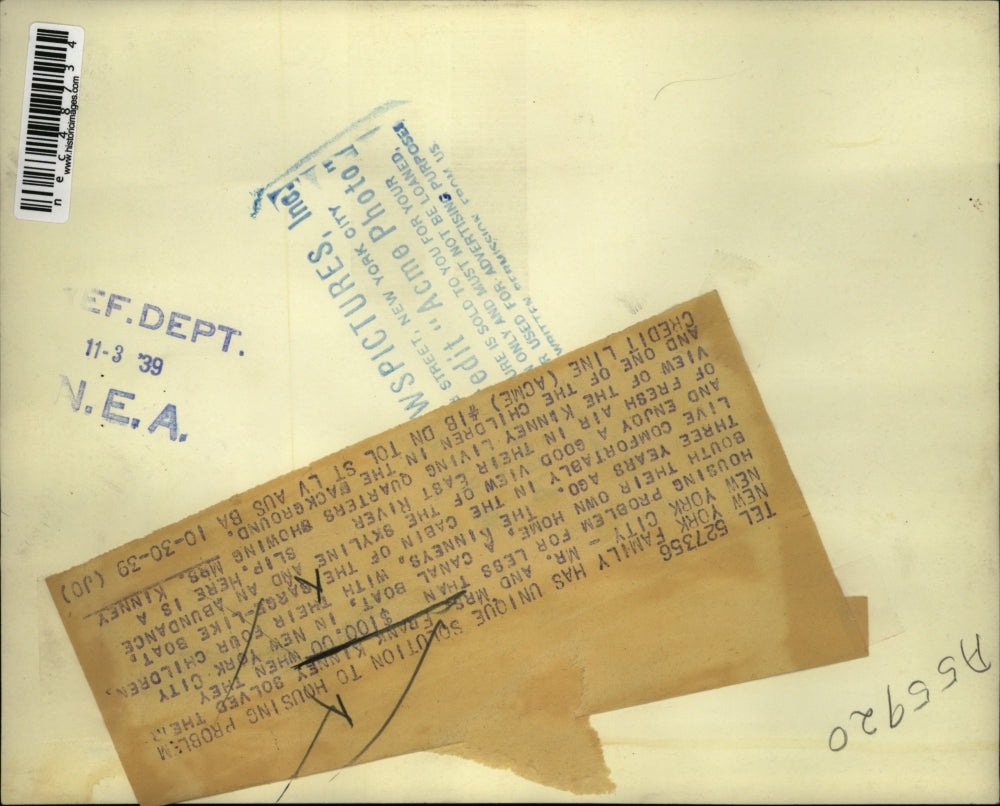 nec48734
www.historicimages.com
EF. DEPT.
11-3 '39
N.E.A.
WSPICTURES, Inc.
STREET, NEW YORK CITY
edit "Acme Photo"
URE IS SOLD TO YOU FOR YOUR
N ONLY AND MUST NOT BE LOANED,
R USED FOR ADVERTISING PURPOSES
WRITTEN PERMISSION FROM US
527356
TEL
NEW YORK FAMILY HAS UNIQUE SOLUTION TO HOUSING PROBLEM
NEW YORK CITY -- MR. AND MRS. FRANK KINNEY SOLVED THEIR
HOUSING PROBLEM FOR LESS THAN $100.00 WHEN THEY
BOUTH THEIR OWN HOME, A CANAL BOAT, IN NEW YORK CITY
THREE YEARS AGO. THE KINNEYS, WITH THEIR FOUR CHILDREN,
LIVE COMFORTABLY IN THE CABIN OF THE BARGE-LIKE BOAT,
AND ENJOY A GOOD VIEW OF THE SKYLINE AND AN ABUNDANCE
OF FRESH AIR IN THEIR EAST RIVER SLIP. HERE IS A
VIEW OF THE KINNEY LIVING QUARTERS SHOWING MRS. KINNEY
AND ONE OF THE CHILDREN IN THE BACKGROUND.
CREDIT LINE (ACME) #IB DN TOL ST LV AUS BA 10-30-39 (JO)
A55920